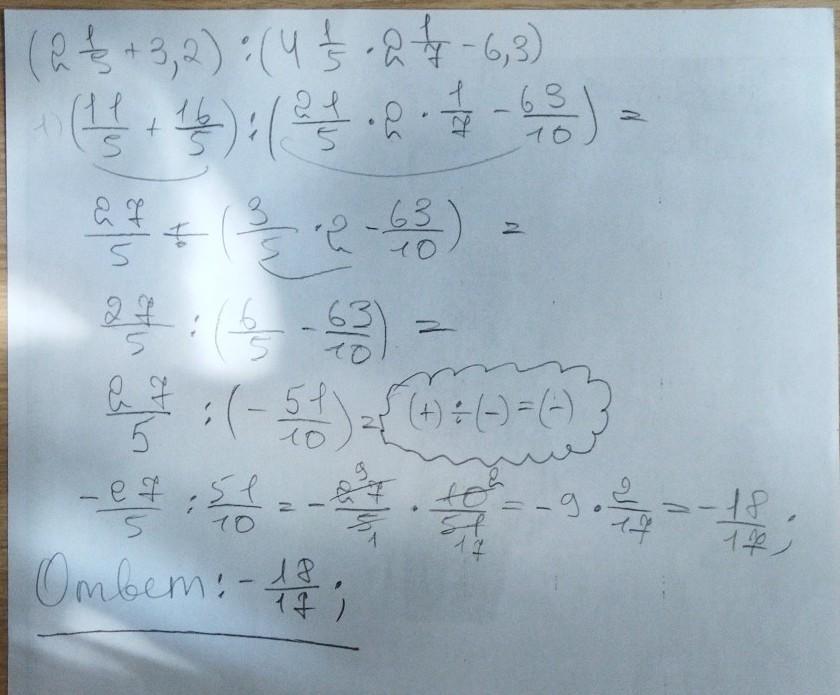 (2 1/5 + 3,2) : (4 1/5 · 2 1/7 - 6,3)
1) (11/5 + 16/5) : (21/5 · 2 · 1/7 - 63/10) =
27/5 ÷ (3/5 · 2 - 63/10) =
27/5 : (6/5 - 63/10) =
27/5 : (- 51/10) = (+) ÷ (-) = (-)
-27/5 : 51/10 = - 27 9/5 1 · 10 2/51 17 = - 9 · 2/17 = - 18/17;
Ответ: - 18/17;